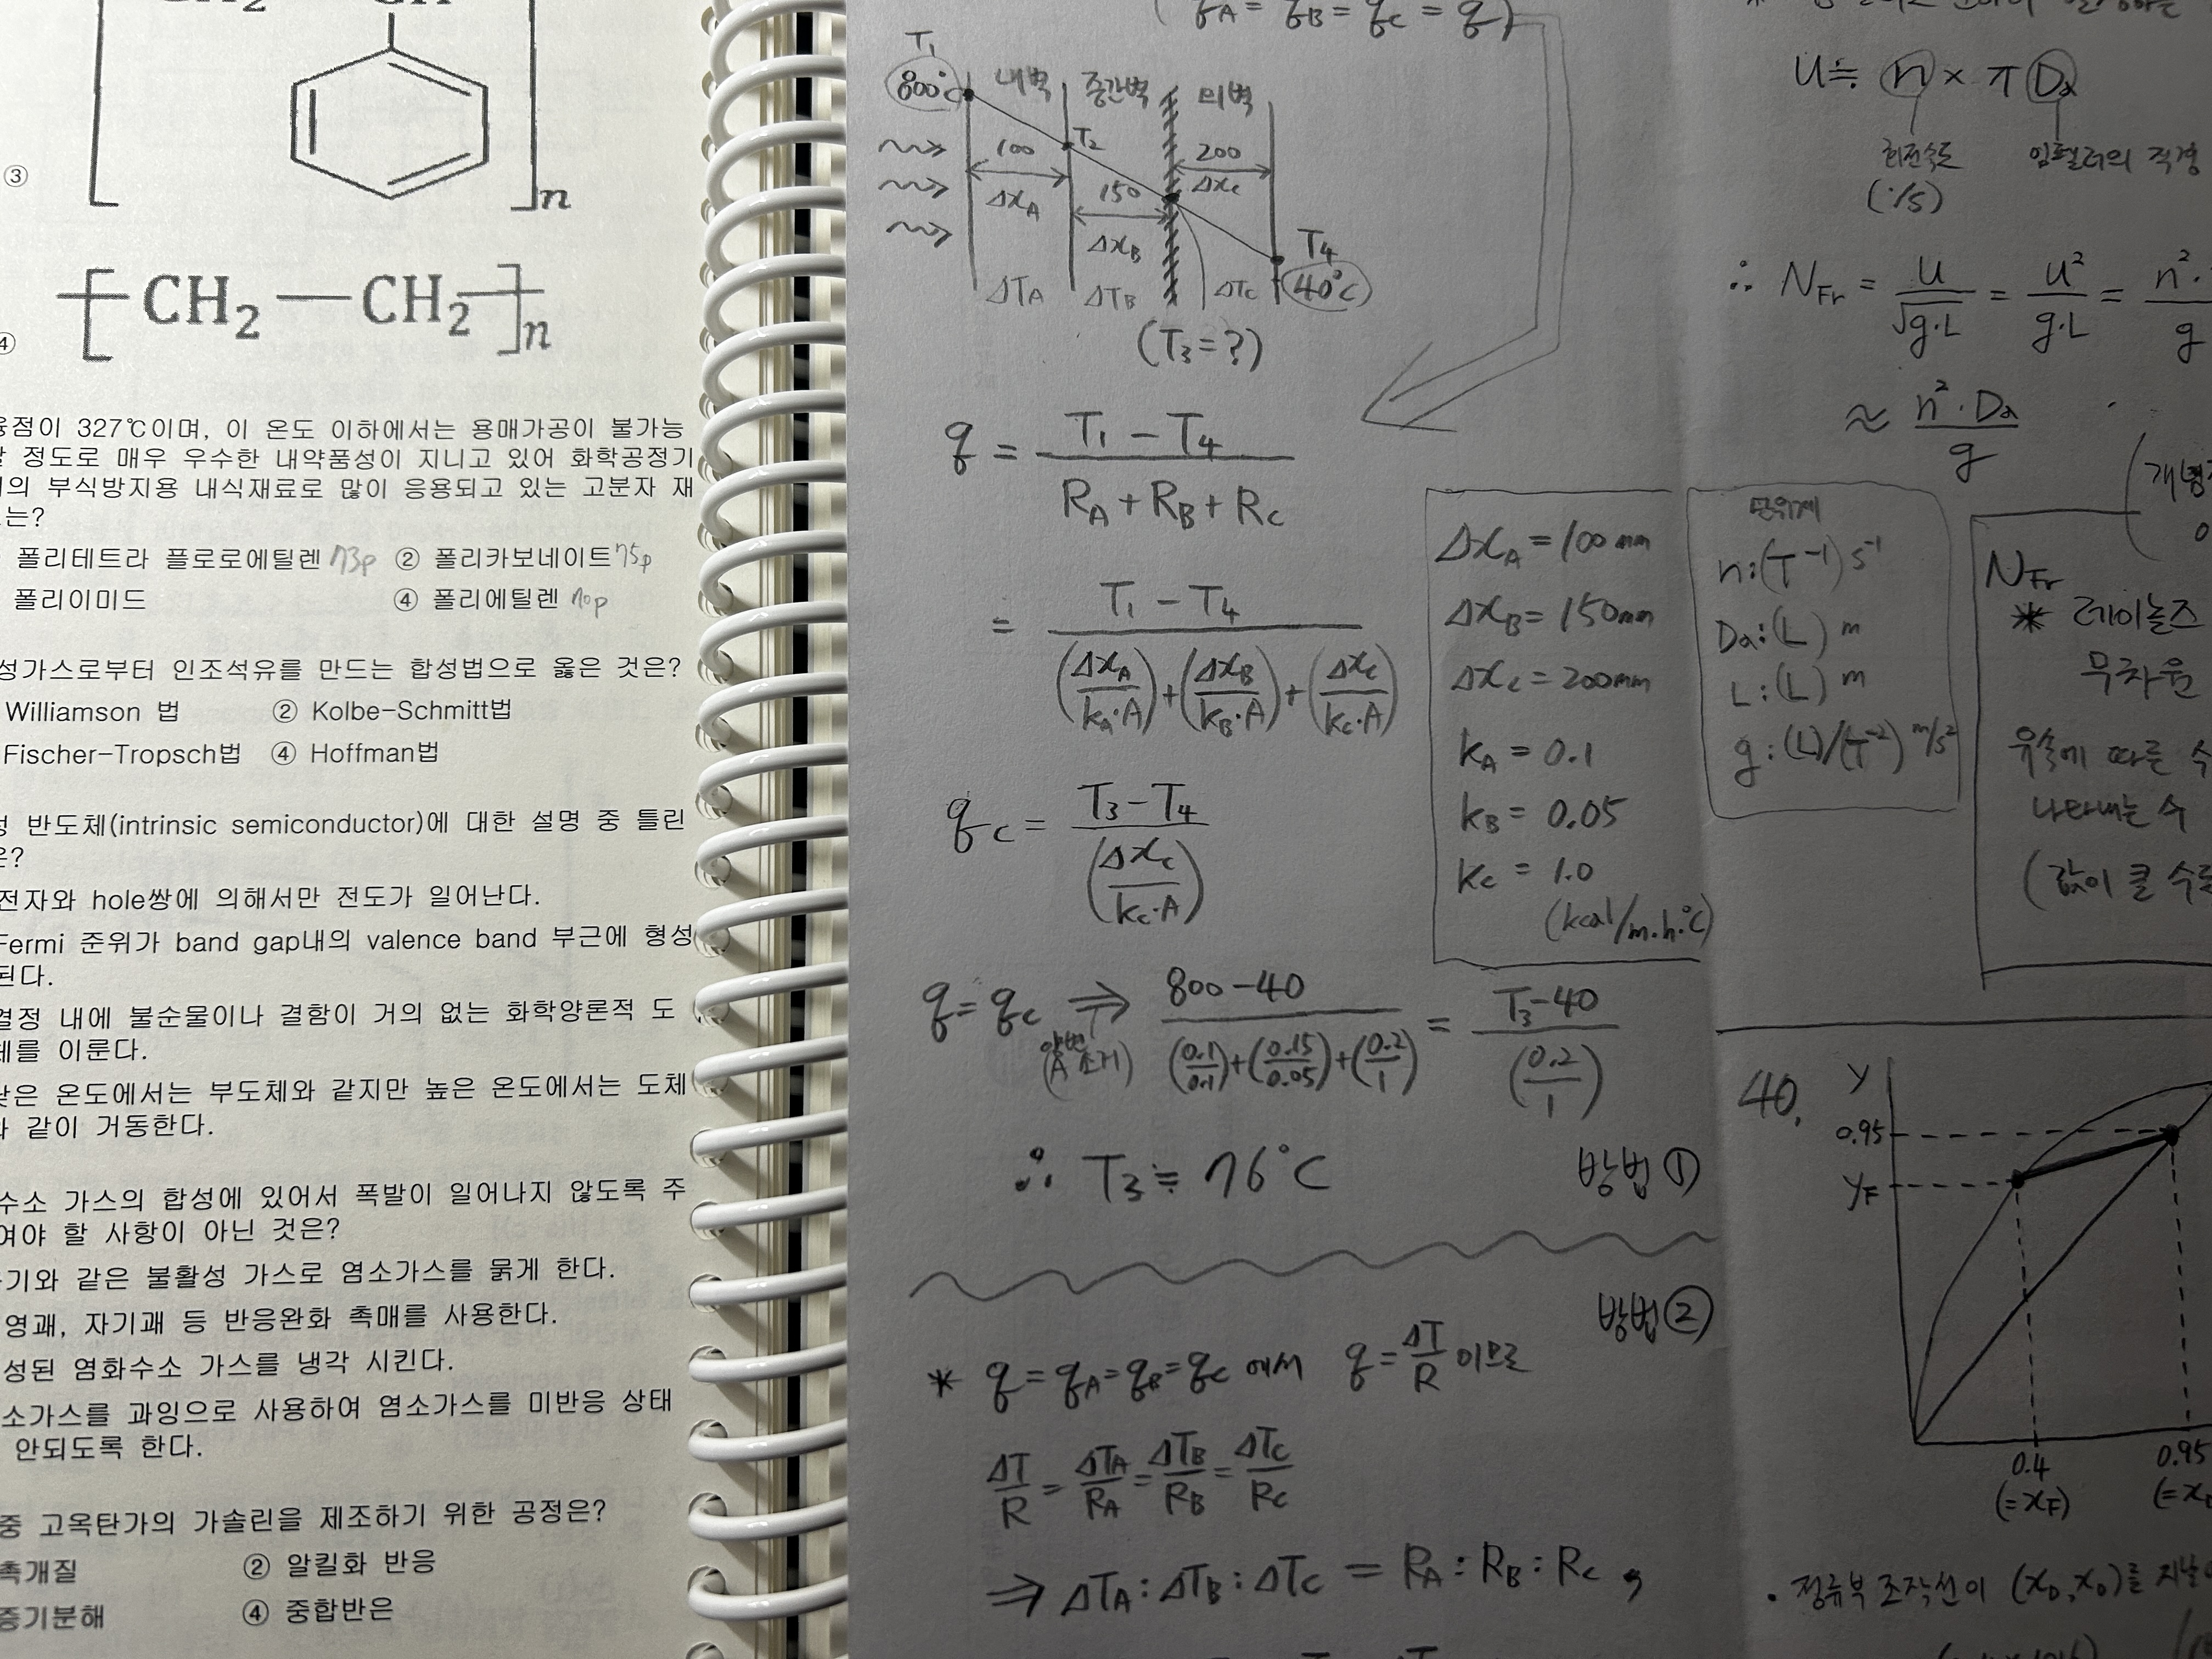 ③
n
④ CH₂ — CH₂ n
융점이 327℃이며, 이 온도 이하에서는 용매가공이 불가능
할 정도로 매우 우수한 내약품성이 지니고 있어 화학공정기
의 부식방지용 내식재료로 많이 응용되고 있는 고분자 재
는?
폴리테트라 플로로에틸렌 73p ② 폴리카보네이트 75p
폴리이미드 ④ 폴리에틸렌 70p
성가스로부터 인조석유를 만드는 합성법으로 옳은 것은?
Williamson 법 ② Kolbe-Schmitt법
Fischer-Tropsch법 ④ Hoffman법
성 반도체(intrinsic semiconductor)에 대한 설명 중 틀린
은?
전자와 hole쌍에 의해서만 전도가 일어난다.
Fermi 준위가 band gap내의 valence band 부근에 형성
된다.
결정 내에 불순물이나 결함이 거의 없는 화학양론적 도
체를 이룬다.
낮은 온도에서는 부도체와 같지만 높은 온도에서는 도체
와 같이 거동한다.
수소 가스의 합성에 있어서 폭발이 일어나지 않도록 주
여야 할 사항이 아닌 것은?
기와 같은 불활성 가스로 염소가스를 묽게 한다.
영괘, 자기괘 등 반응완화 촉매를 사용한다.
성된 염화수소 가스를 냉각 시킨다.
소가스를 과잉으로 사용하여 염소가스를 미반응 상태
안되도록 한다.
중 고옥탄가의 가솔린을 제조하기 위한 공정은?
촉개질 ② 알킬화 반응
증기분해 ④ 중합반은
(qA = qB = qC = q)
T₁
800℃ 내벽 중간벽 외벽
T₂
100 150 200
ΔxA ΔxB Δxc
T₄
40℃
ΔTA ΔTB ΔTc
(T₃=?)
q = (T₁ - T₄) / (RA + RB + Rc)
= (T₁ - T₄) / ((ΔxA/kA·A) + (ΔxB/kB·A) + (Δxc/kc·A))
qc = (T₃ - T₄) / (Δxc/kc·A)
ΔxA = 100mm
ΔxB = 150mm
Δxc = 200mm
kA = 0.1
kB = 0.05
kc = 1.0
(kcal/m·h·℃)
q = qc ⇒ (800-40) / ((0.1/0.1)+(0.15/0.05)+(0.2/1)) = (T₃-40) / (0.2/1)
(양변 A 소거)
∴ T₃ ≒ 76℃ 방법①
방법②
* q = qA = qB = qc 에서 q = ΔT/R 이므로
ΔT/R = ΔTA/RA = ΔTB/RB = ΔTc/Rc
⇒ ΔTA : ΔTB : ΔTc = RA : RB : Rc ,
U ≒ n × π Da
회전속도 임펠러의 직경
(1/s)
∴ NFr = U/√g·L = U²/g·L = n²·/g
≈ n²·Da/g
단위계
n : (T⁻¹) s⁻¹
Da : (L) m
L : (L) m
g : (L)/(T⁻²) m/s²
NFr
* 레이놀즈
무차원
유속에 따른 수
나타내는 수
(값이 클 수록
40.
y
0.95
yF
0.4 0.95
(=xF) (=x
• 정류부 조작선이 (xD, xD)를 지날